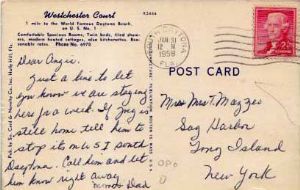 Westchester Court
1 mile to the World Famous Daytona Beach,
on U. S. No. 1
Comfortable Spacious Rooms, Twin beds, tiled showers, modern heated cottages, nice kitchenettes. Reasonable rates. Phone No. 6970
Dear Angie.
Just a line to let
you know we are staying
here for a week. If Joey is
still home tell him to
stop
Daytona. Call him and let
him know right away
Dad
JAN 31
12 M
1958
FLA.
2¢
POST CARD
Miss Mrs T. Mazzeo
Sag Harbor
Long Island
New York